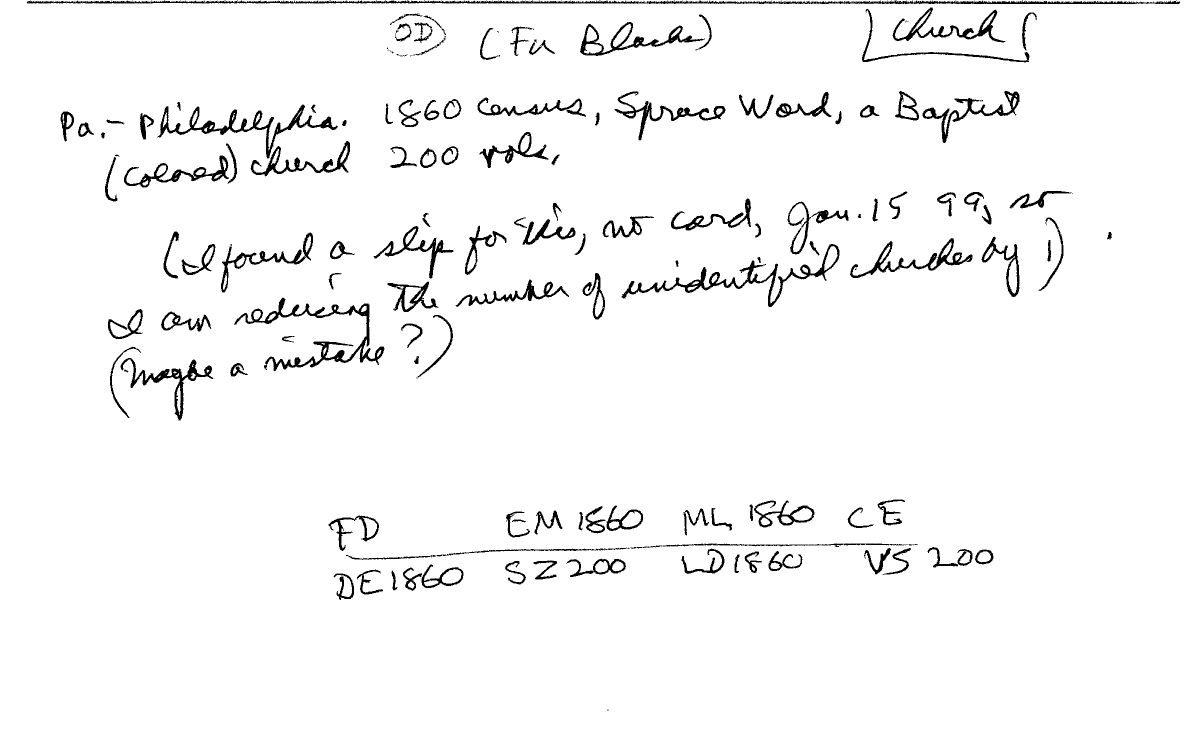 OD (For Blacks) Church
Pa.- Philadelphia. 1860 census, Spruce Ward, a Baptist
(Colored) church 200 vols,
(I found a slip for this, no card, Jan. 15 99, so
I am reducing the number of unidentified churches by 1)
(Maybe a mistake?)
FD EM 1860 ML 1860 CE
DE 1860 SZ 200 LD 1860 VS 200